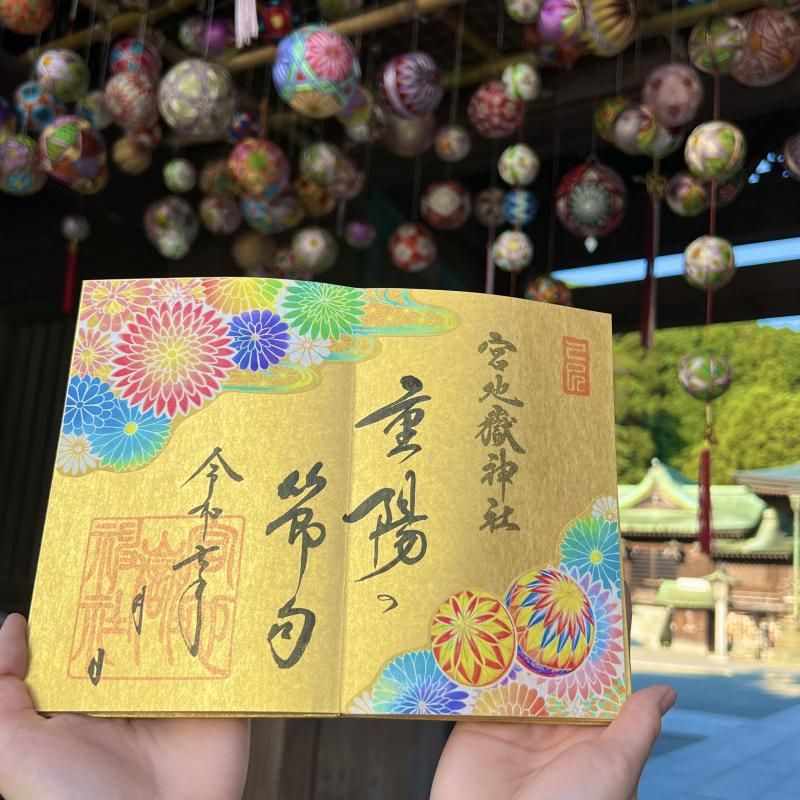 宮地嶽神社
重陽の
節句
令和六年
月
日
宮地嶽神社